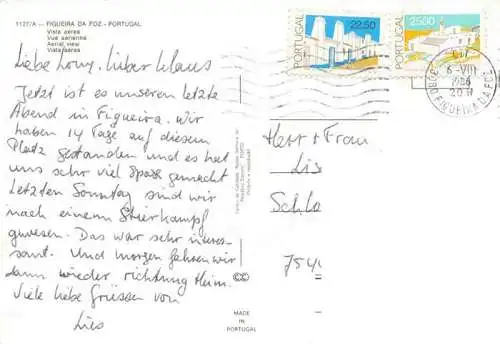 1127/A — FIGUEIRA DA FOZ - PORTUGAL
Vista aérea
Vue aérienne
Aerial view
Vista aérea
Liebe Lony, lieber Klaus
Jetzt ist es unseren letzte
Abend in Figueira. Wir
haben 14 Tage auf diesem
Platz gestanden und es hat
uns sehr viel Spass gemacht
Letzten Sonntag sind wir
nach einem Stierkampf
gewesen. Das war sehr interes-
sant. Und morgen fahren wir
dann wieder richtung Heim.
Viele liebe Grüssen von
Lies
PORTUGAL 22.50
PORTUGAL 25$00
6-VIII
1986
20 H
FIGUEIRA DA FOZ
Herr + Frau
Lis
Schlo
754
MADE
IN
PORTUGAL